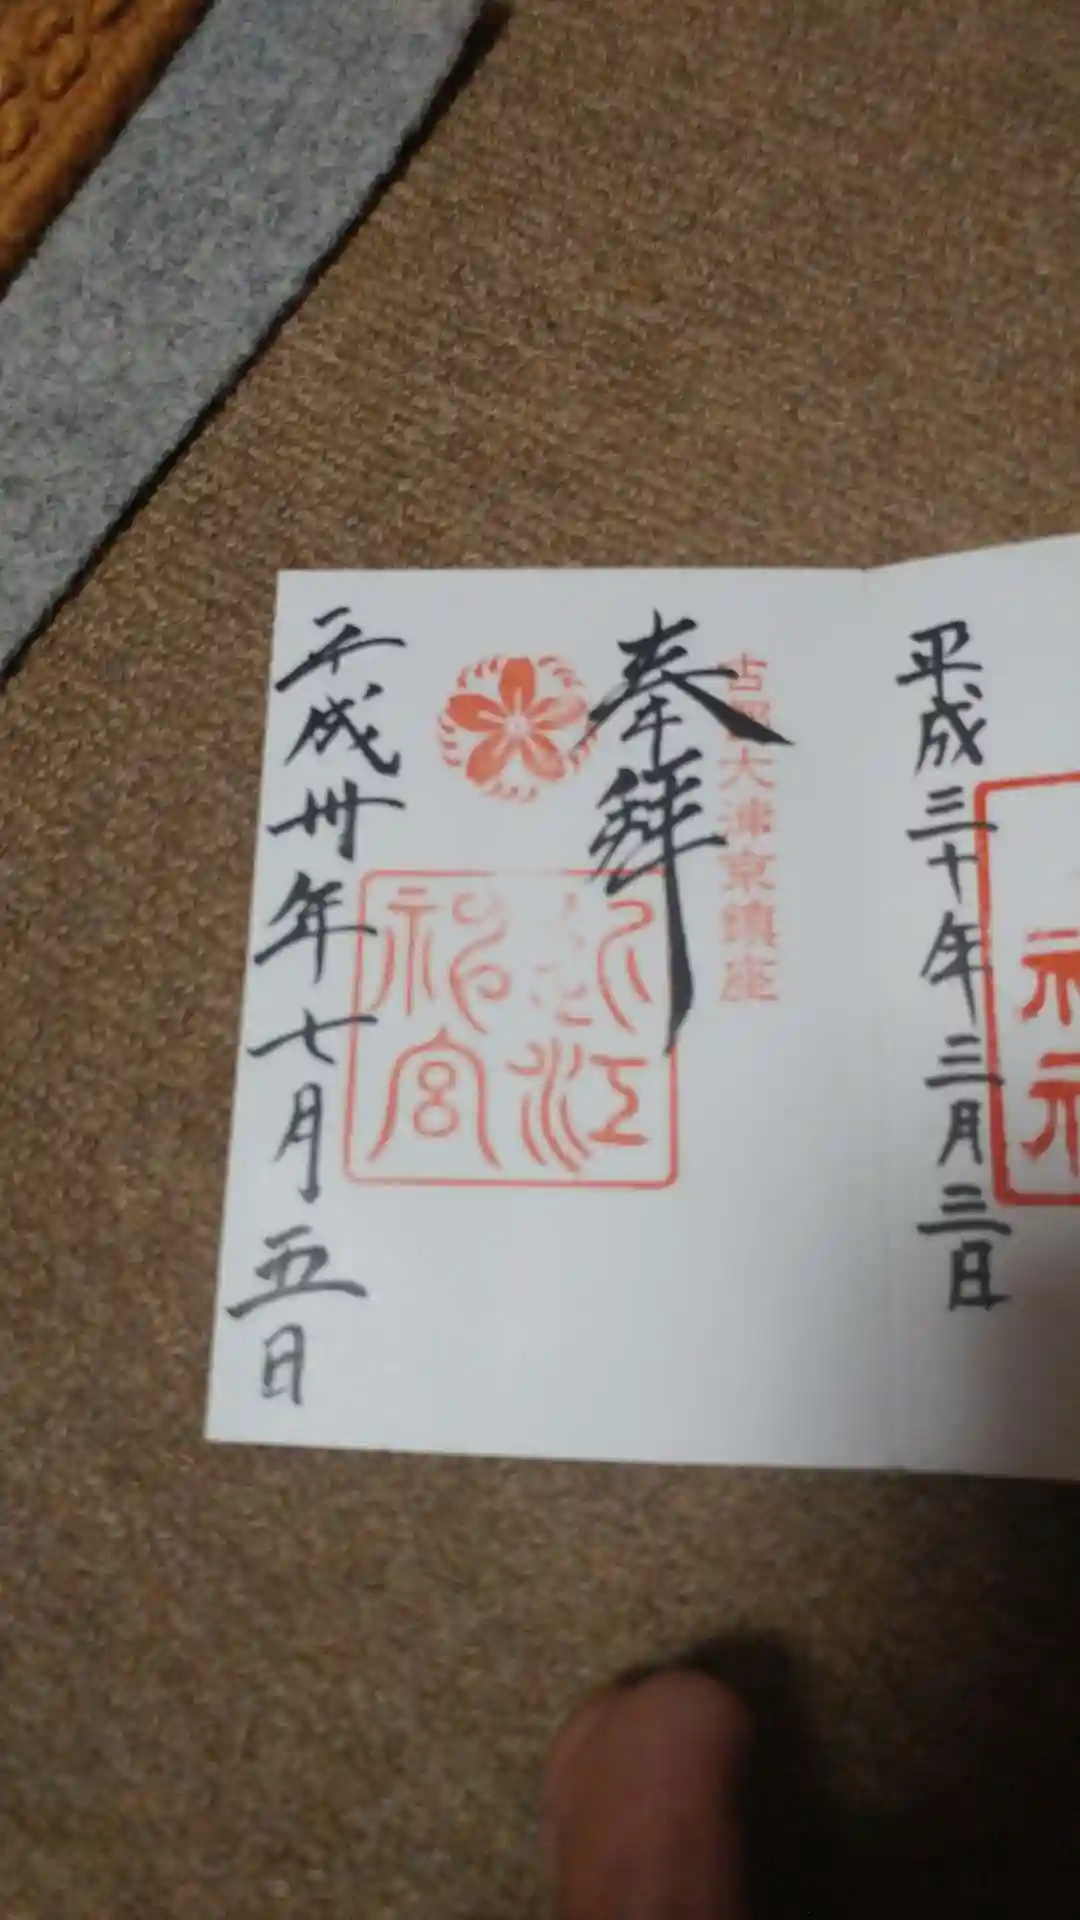 平成三十年三月三日
古都大津京鎮座
奉拝
近江
神宮
平成卅年七月五日